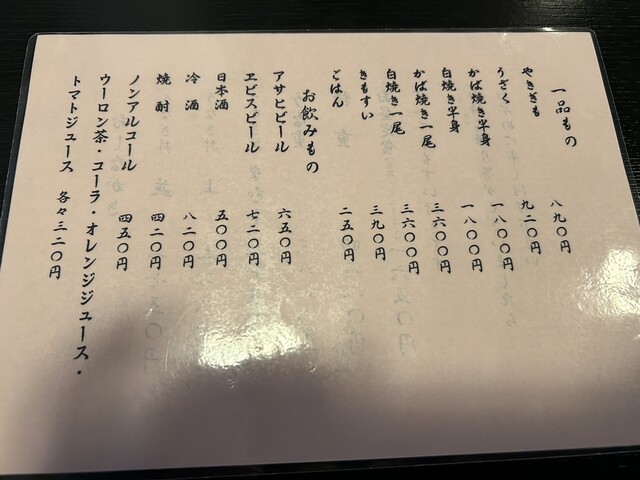 一品もの
やきぎも 八九〇円
うざく 九二〇円
かば焼き半身 一八〇〇円
白焼き半身 一八〇〇円
かば焼き一尾 三六〇〇円
白焼き一尾 三六〇〇円
きもすい 三九〇円
ごはん 二五〇円
お飲みもの
アサヒビール 六五〇円
ヱビスビール 七二〇円
日本酒 五〇〇円
冷酒 八二〇円
焼酎 四二〇円
ノンアルコール 四五〇円
ウーロン茶・コーラ・オレンジジュース・
トマトジュース 各々三二〇円